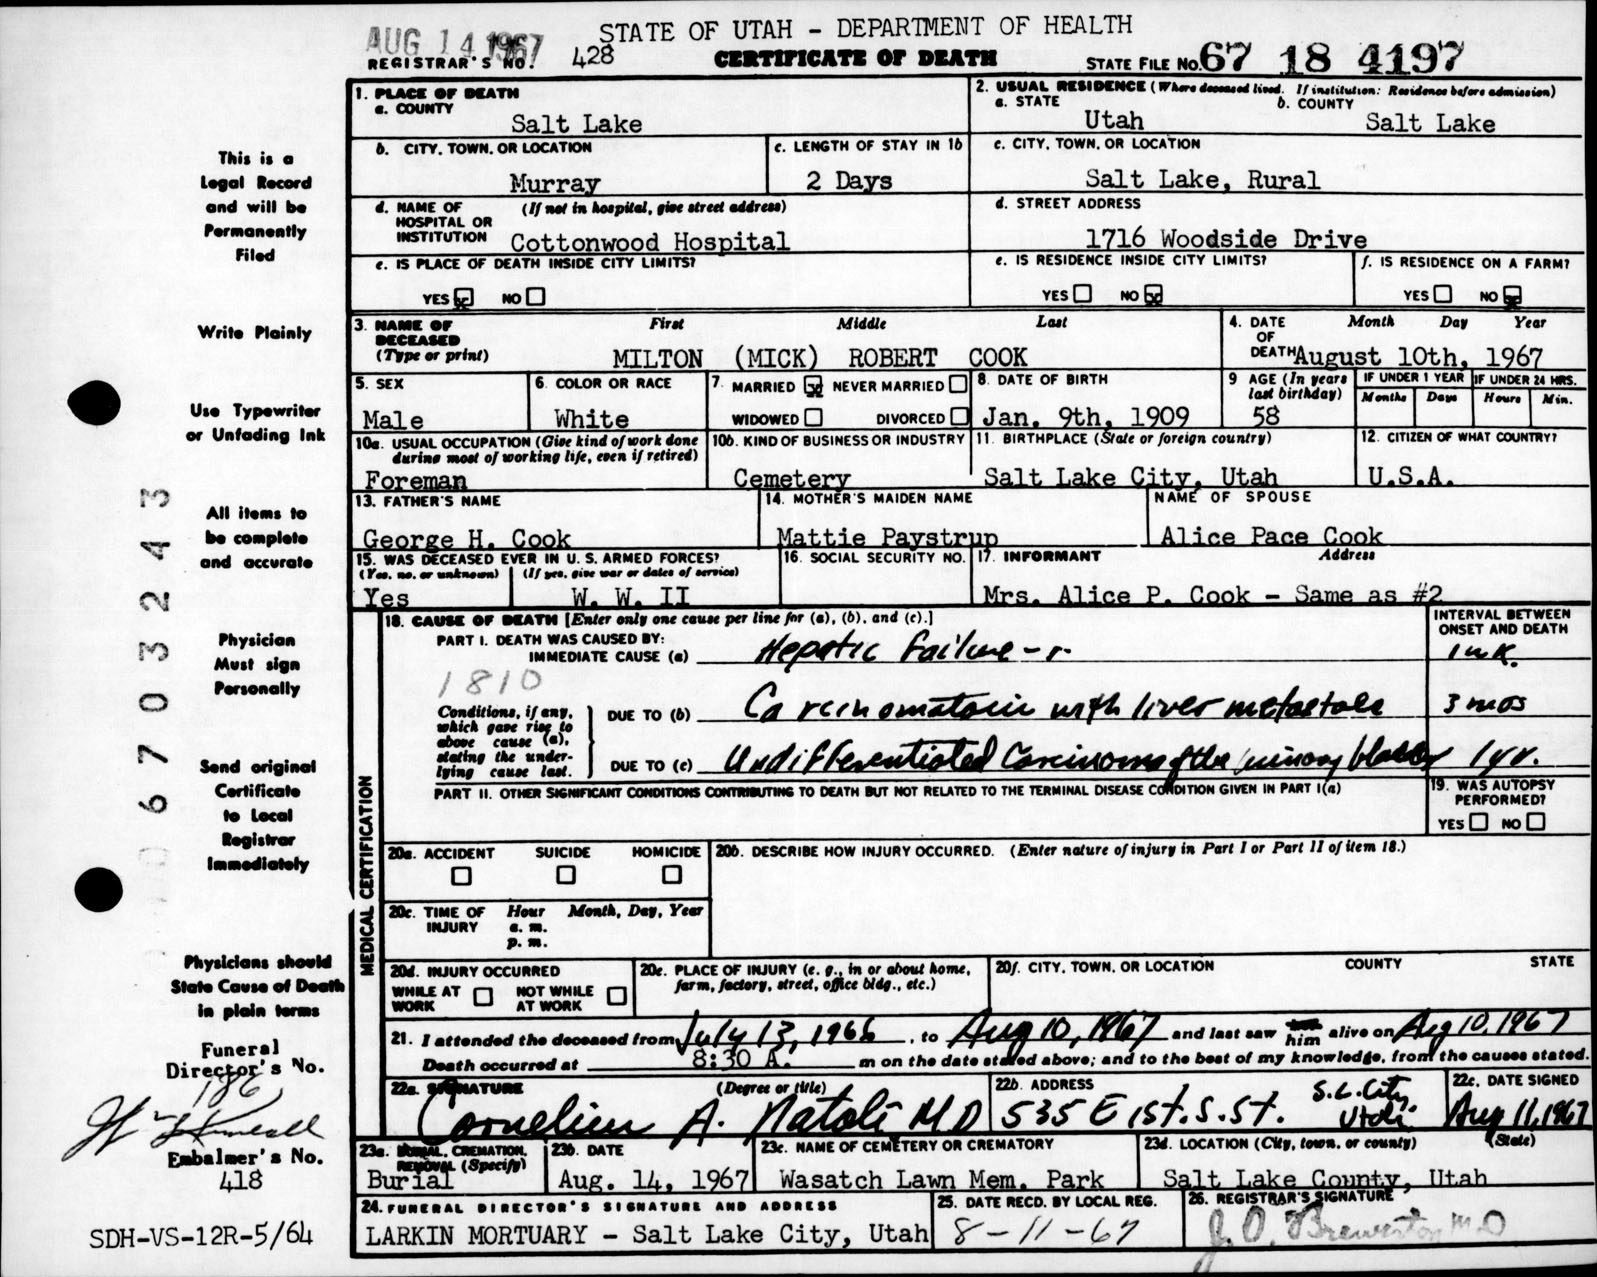 AUG 14 1967
STATE OF UTAH - DEPARTMENT OF HEALTH
REGISTRAR'S NO. 428
CERTIFICATE OF DEATH
STATE FILE NO. 67 18 4197
This is a
Legal Record
and will be
Permanently
Filed
Write Plainly
Use Typewriter
or Unfading Ink
All items to
be complete
and accurate
Physician
Must sign
Personally
Send original
Certificate
to Local
Registrar
Immediately
Physicians should
State Cause of Death
in plain terms
Funeral
Director's No.
186
Embalmer's No.
418
SDH-VS-12R-5/64
67032243
1. PLACE OF DEATH
a. COUNTY
Salt Lake
2. USUAL RESIDENCE (Where deceased lived. If institution: Residence before admission)
a. STATE b. COUNTY
Utah Salt Lake
b. CITY, TOWN, OR LOCATION
Murray
c. LENGTH OF STAY IN 1b
2 Days
c. CITY, TOWN, OR LOCATION
Salt Lake, Rural
d. NAME OF (If not in hospital, give street address)
HOSPITAL OR
INSTITUTION Cottonwood Hospital
d. STREET ADDRESS
1716 Woodside Drive
e. IS PLACE OF DEATH INSIDE CITY LIMITS?
YES x NO
e. IS RESIDENCE INSIDE CITY LIMITS?
YES NO x
f. IS RESIDENCE ON A FARM?
YES NO x
3. NAME OF First Middle Last
DECEASED
(Type or print) MILTON (MICK) ROBERT COOK
4. DATE Month Day Year
OF
DEATH August 10th, 1967
5. SEX
Male
6. COLOR OR RACE
White
7. MARRIED x NEVER MARRIED
WIDOWED DIVORCED
8. DATE OF BIRTH
Jan. 9th, 1909
9 AGE (In years
last birthday)
58
IF UNDER 1 YEAR IF UNDER 24 HRS.
Months Days Hours Min.
10a. USUAL OCCUPATION (Give kind of work done
during most of working life, even if retired)
Foreman
10b. KIND OF BUSINESS OR INDUSTRY
Cemetery
11. BIRTHPLACE (State or foreign country)
Salt Lake City, Utah
12. CITIZEN OF WHAT COUNTRY?
U.S.A.
13. FATHER'S NAME
George H. Cook
14. MOTHER'S MAIDEN NAME
Mattie Paystrup
NAME OF SPOUSE
Alice Pace Cook
15. WAS DECEASED EVER IN U. S. ARMED FORCES?
(Yes, no, or unknown) (If yes, give war or dates of service)
Yes W. W. II
16. SOCIAL SECURITY NO.
17. INFORMANT Address
Mrs. Alice P. Cook - Same as #2
MEDICAL CERTIFICATION
18. CAUSE OF DEATH [Enter only one cause per line for (a), (b), and (c).]
INTERVAL BETWEEN
ONSET AND DEATH
PART I. DEATH WAS CAUSED BY:
IMMEDIATE CAUSE (a) Hepatic Failure 1 wk.
1810
Conditions, if any,
which gave rise to
above cause (a),
stating the under-
lying cause last.
DUE TO (b) Carcinomatosis with liver metastases 3 mos
DUE TO (c) Undifferentiated Carcinoma of the urinary bladder 1 yr.
PART II. OTHER SIGNIFICANT CONDITIONS CONTRIBUTING TO DEATH BUT NOT RELATED TO THE TERMINAL DISEASE CONDITION GIVEN IN PART I(a)
19. WAS AUTOPSY
PERFORMED?
YES NO
20a. ACCIDENT SUICIDE HOMICIDE
20b. DESCRIBE HOW INJURY OCCURRED. (Enter nature of injury in Part I or Part II of item 18.)
20c. TIME OF Hour Month, Day, Year
INJURY a. m.
p. m.
20d. INJURY OCCURRED
WHILE AT NOT WHILE
WORK AT WORK
20e. PLACE OF INJURY (e. g., in or about home,
farm, factory, street, office bldg., etc.)
20f. CITY, TOWN, OR LOCATION COUNTY STATE
21. I attended the deceased from July 13, 1966, to Aug 10, 1967 and last saw him alive on Aug 10, 1967
Death occurred at 8:30 A. m on the date stated above; and to the best of my knowledge, from the causes stated.
22a. SIGNATURE (Degree or title)
Cornelius A. Natoli M.D
22b. ADDRESS
535 E 1st. S. St. S.L. City Utah
22c. DATE SIGNED
Aug 11, 1967
23a. BURIAL, CREMATION,
REMOVAL (Specify)
Burial
23b. DATE
Aug. 14, 1967
23c. NAME OF CEMETERY OR CREMATORY
Wasatch Lawn Mem. Park
23d. LOCATION (City, town, or county) (State)
Salt Lake County, Utah
24. FUNERAL DIRECTOR'S SIGNATURE AND ADDRESS
LARKIN MORTUARY - Salt Lake City, Utah
25. DATE RECD. BY LOCAL REG.
8-11-67
26. REGISTRAR'S SIGNATURE
J. O. Brewerton M.D